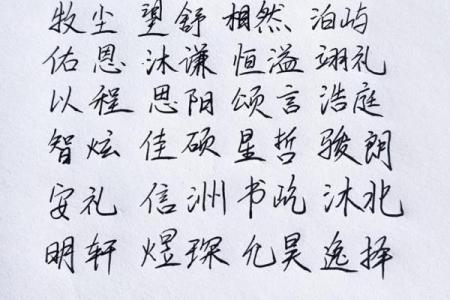 牧尘 望舒 相然 泊屿
佑恩 沐谦 恒溢 翊礼
以程 思阳 颂言 浩庭
智炫 佳硕 星哲 骏朗
安礼 信洲 书屹 沐北
明轩 煜琛 允昊 逸择